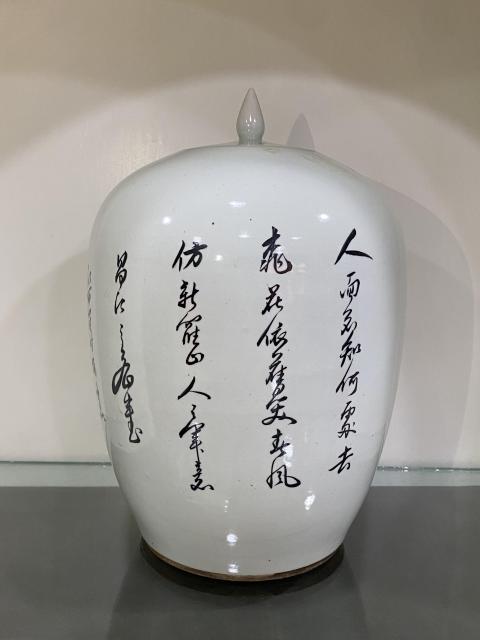 人面不知何處去
桃花依舊笑春風
仿新羅山人之筆意
昌江之